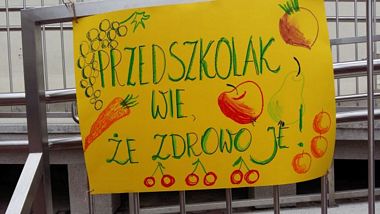 PRZEDSZKOLAK
WIE,
ŻE ZDROWO JE!